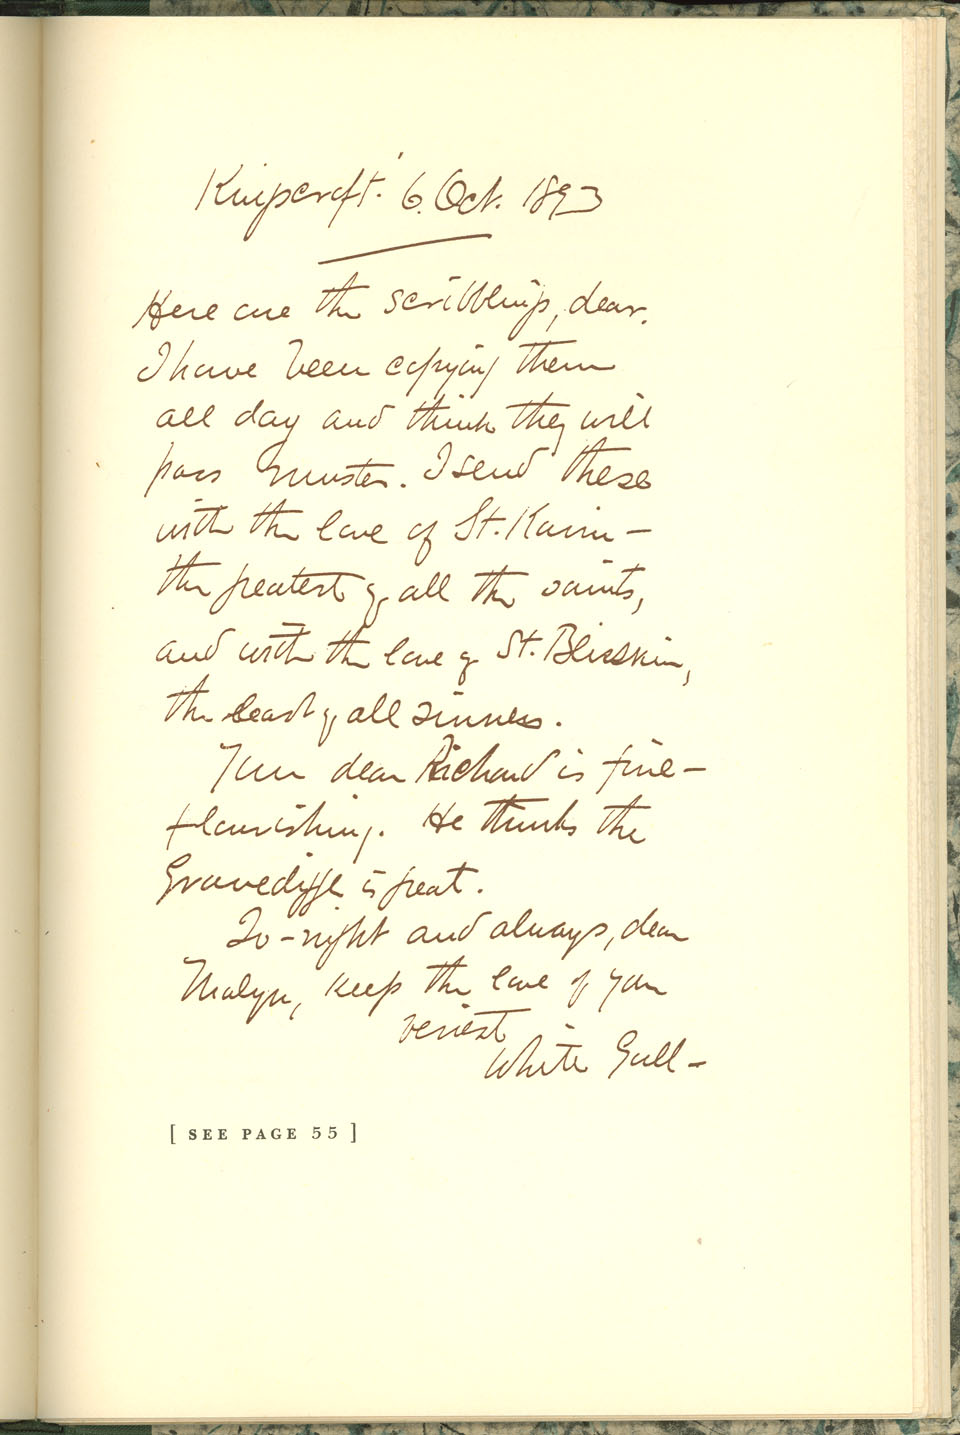 Kingscroft. 6. Oct. 1893
Here are the scribblings, dear.
I have been copying them
all day and think they will
pass muster. I send these
with the love of St. Kavin —
the greatest of all the saints,
and with the love of St. Blisskin,
the least of all sinners.
Your dear Richard is fine —
flourishing. He thinks the
Gravedigger is great.
To-night and always, dear
Malyn, keep the love of your
veriest
White Gull —
[ SEE PAGE 55 ]